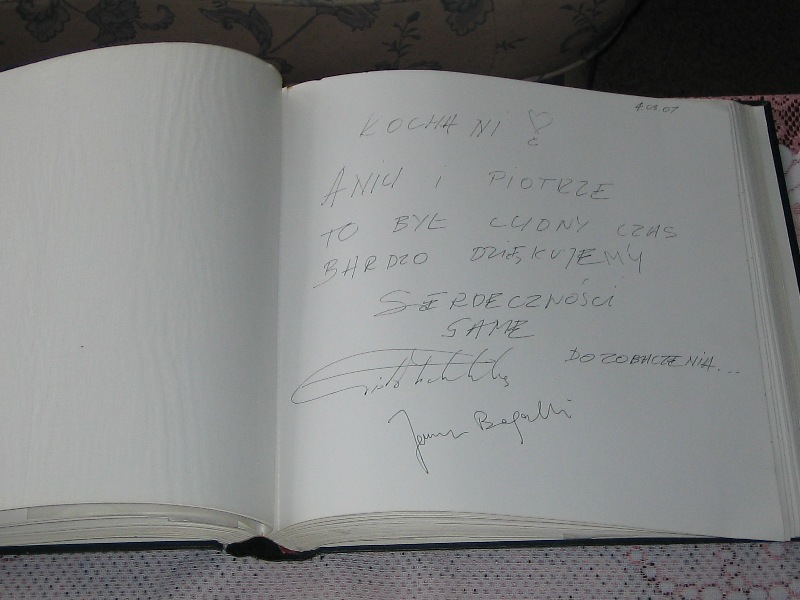 4.03.07
KOCHANI
ANIU I PIOTRZE
TO BYŁ CUDNY CZAS
BARDZO DZIĘKUJEMY
SERDECZNOŚCI
SAME
DO ZOBACZENIA...